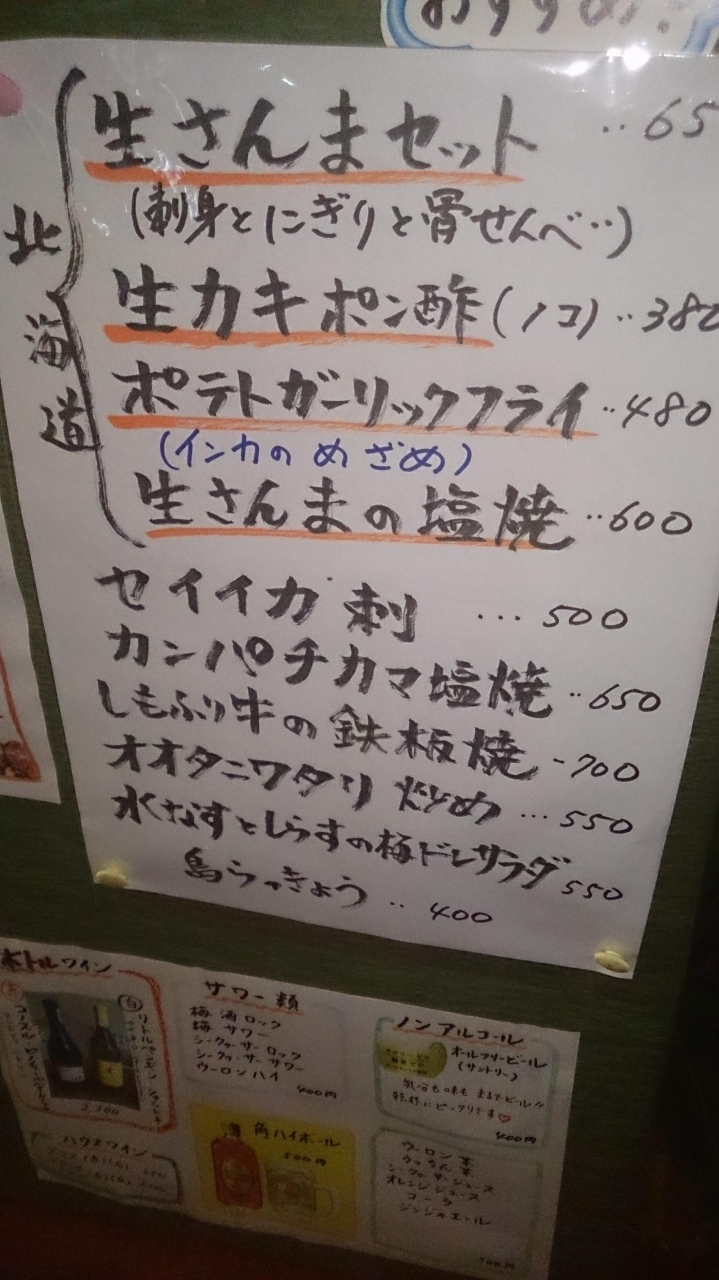 おすすめ!
北海道
生さんまセット ‥65
(刺身とにぎりと骨せんべ‥)
生カキポン酢(1コ)‥380
ポテトガーリックフライ‥480
(インカのめざめ)
生さんまの塩焼‥600
セイイカ刺 …500
カンパチカマ塩焼‥650
しもふり牛の鉄板焼-700
オオタニワタリ炒め…550
水なすとしらすの梅ドレサラダ550
島らっきょう‥400
ボトルワイン
赤
白
2,300
ハウスワイン
サワー類
梅酒ロック
梅サワー
シークヮーサーロック
シークヮーサーサワー
ウーロンハイ
400円
角ハイボール
500円
ノンアルコール
オールフリービール
(サントリー)
気分も味もまるでビール!!
乾杯にピッタリです♡
400円
ウーロン茶
うっちん茶
シークヮーサージュース
オレンジジュース
コーラ
ジンジャエール